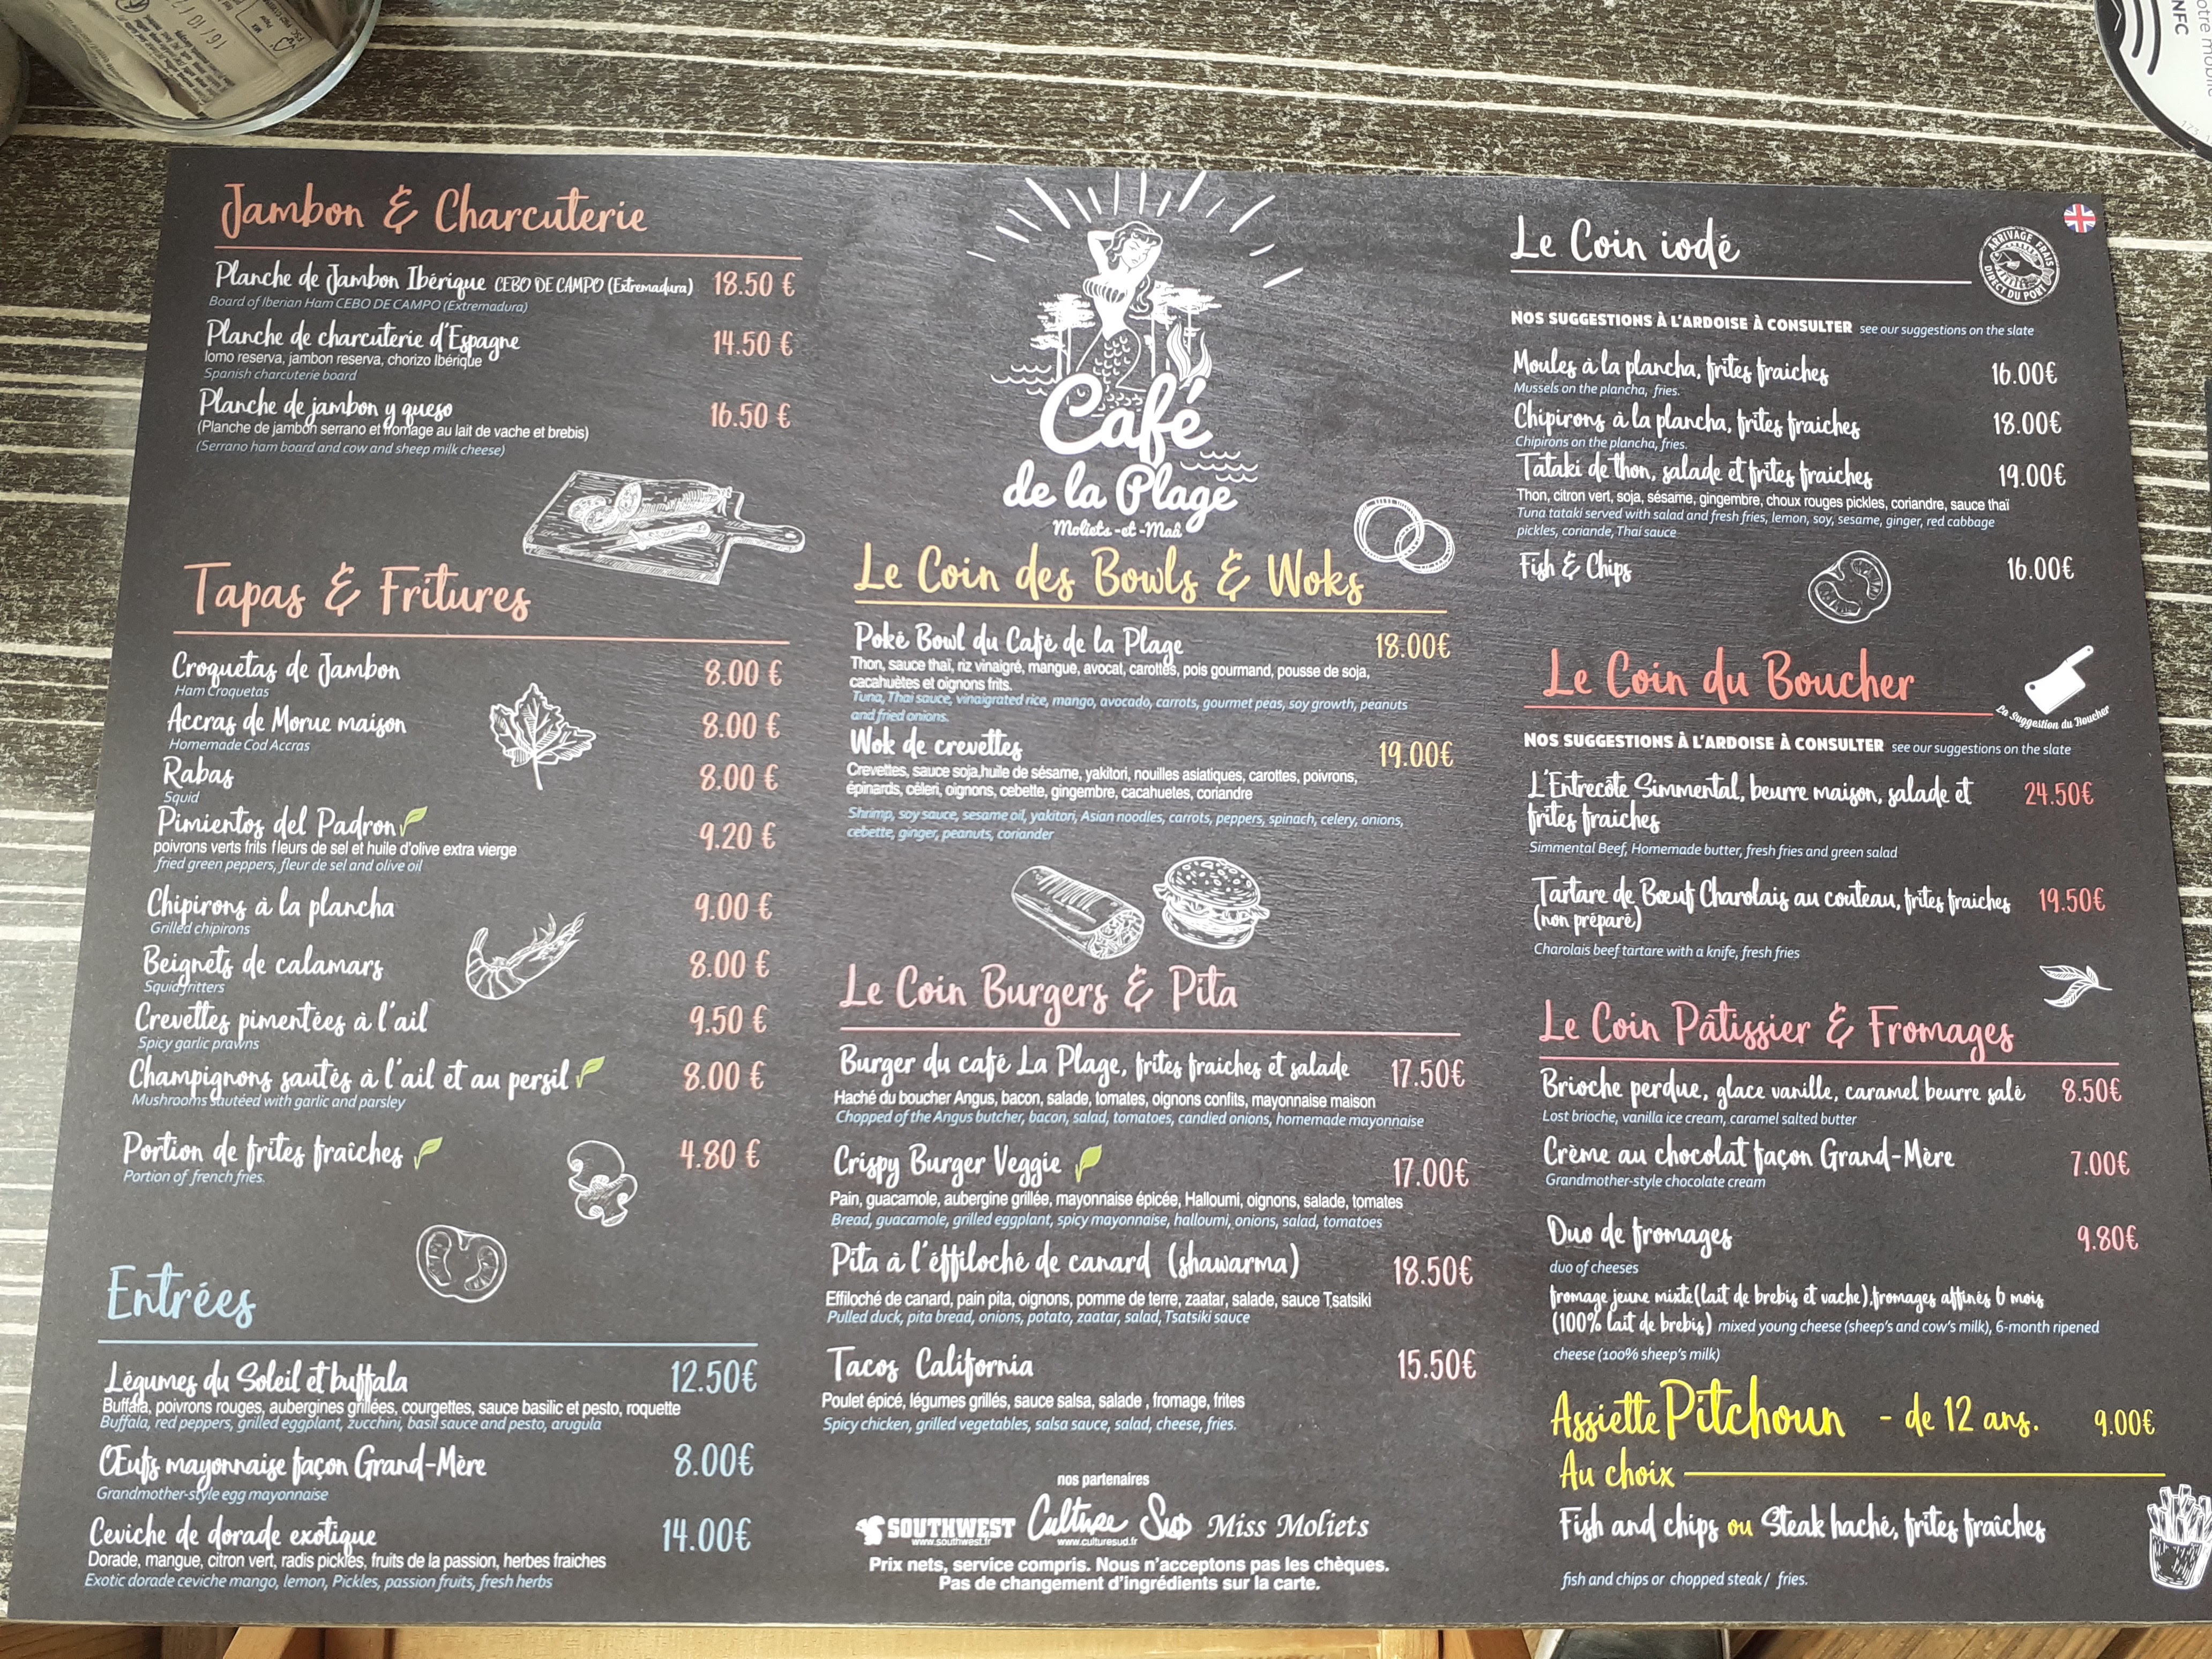 Jambon & Charcuterie
Planche de Jambon Ibérique CEBO DE CAMPO (Extremadura) 18.50 €
Board of Iberian Ham CEBO DE CAMPO (Extremadura)
Planche de charcuterie d'Espagne 14.50 €
lomo reserva, jambon reserva, chorizo Ibérique
Spanish charcuterie board
Planche de jambon y queso 16.50 €
(Planche de jambon serrano et fromage au lait de vache et brebis)
(Serrano ham board and cow and sheep milk cheese)
Tapas & Fritures
Croquetas de Jambon 8.00 €
Ham Croquetas
Accras de Morue maison 8.00 €
Homemade Cod Accras
Rabas 8.00 €
Squid
Pimientos del Padron 9.20 €
poivrons verts frits fleurs de sel et huile d'olive extra vierge
fried green peppers, fleur de sel and olive oil
Chipirons à la plancha 9.00 €
Grilled chipirons
Beignets de calamars 8.00 €
Squid fritters
Crevettes pimentées à l'ail 9.50 €
Spicy garlic prawns
Champignons sautés à l'ail et au persil 8.00 €
Mushrooms sautéed with garlic and parsley
Portion de frites fraîches 4.80 €
Portion of french fries.
Entrées
Légumes du Soleil et buffala 12.50€
Buffala, poivrons rouges, aubergines grillées, courgettes, sauce basilic et pesto, roquette
Buffala, red peppers, grilled eggplant, zucchini, basil sauce and pesto, arugula
Œufs mayonnaise façon Grand-Mère 8.00€
Grandmother-style egg mayonnaise
Ceviche de dorade exotique 14.00€
Dorade, mangue, citron vert, radis pickles, fruits de la passion, herbes fraiches
Exotic dorade ceviche mango, lemon, Pickles, passion fruits, fresh herbs
Café
de la Plage
Moliets-et-Maâ
Le Coin des Bowls & Woks
Poké Bowl du Café de la Plage 18.00€
Thon, sauce thaï, riz vinaigré, mangue, avocat, carottes, pois gourmand, pousse de soja,
cacahuètes et oignons frits.
Tuna, Thai sauce, vinaigrated rice, mango, avocado, carrots, gourmet peas, soy growth, peanuts
and fried onions.
Wok de crevettes 19.00€
Crevettes, sauce soja,huile de sésame, yakitori, nouilles asiatiques, carottes, poivrons,
épinards, céleri, oignons, cebette, gingembre, cacahuetes, coriandre
Shrimp, soy sauce, sesame oil, yakitori, Asian noodles, carrots, peppers, spinach, celery, onions,
cebette, ginger, peanuts, coriander
Le Coin Burgers & Pita
Burger du café La Plage, frites fraiches et salade 17.50€
Haché du boucher Angus, bacon, salade, tomates, oignons confits, mayonnaise maison
Chopped of the Angus butcher, bacon, salad, tomatoes, candied onions, homemade mayonnaise
Crispy Burger Veggie 17.00€
Pain, guacamole, aubergine grillée, mayonnaise épicée, Halloumi, oignons, salade, tomates
Bread, guacamole, grilled eggplant, spicy mayonnaise, halloumi, onions, salad, tomatoes
Pita à l'éffiloché de canard (shawarma) 18.50€
Effiloché de canard, pain pita, oignons, pomme de terre, zaatar, salade, sauce Tsatsiki
Pulled duck, pita bread, onions, potato, zaatar, salad, Tsatsiki sauce
Tacos California 15.50€
Poulet épicé, légumes grillés, sauce salsa, salade , fromage, frites
Spicy chicken, grilled vegetables, salsa sauce, salad, cheese, fries.
nos partenaires
SOUTHWEST Culture Sud Miss Moliets
www.southwest.fr www.culturesud.fr
Prix nets, service compris. Nous n'acceptons pas les chèques.
Pas de changement d'ingrédients sur la carte.
Le Coin iodé
ARRIVAGE FRAIS
DIRECT DU PORT
NOS SUGGESTIONS À L'ARDOISE À CONSULTER see our suggestions on the slate
Moules à la plancha, frites fraiches 16.00€
Mussels on the plancha, fries.
Chipirons à la plancha, frites fraiches 18.00€
Chipirons on the plancha, fries.
Tataki de thon, salade et frites fraiches 19.00€
Thon, citron vert, soja, sésame, gingembre, choux rouges pickles, coriandre, sauce thaï
Tuna tataki served with salad and fresh fries, lemon, soy, sesame, ginger, red cabbage
pickles, coriande, Thai sauce
Fish & Chips 16.00€
Le Coin du Boucher
La Suggestion du Boucher
NOS SUGGESTIONS À L'ARDOISE À CONSULTER see our suggestions on the slate
L'Entrecôte Simmental, beurre maison, salade et 24.50€
frites fraiches
Simmental Beef, Homemade butter, fresh fries and green salad
Tartare de Bœuf Charolais au couteau, frites fraiches 19.50€
(non préparé)
Charolais beef tartare with a knife, fresh fries
Le Coin Pâtissier & Fromages
Brioche perdue, glace vanille, caramel beurre salé 8.50€
Lost brioche, vanilla ice cream, caramel salted butter
Crème au chocolat façon Grand-Mère 7.00€
Grandmother-style chocolate cream
Duo de fromages 9.80€
duo of cheeses
fromage jeune mixte(lait de brebis et vache),fromages affinés 6 mois
(100% lait de brebis) mixed young cheese (sheep's and cow's milk), 6-month ripened
cheese (100% sheep's milk)
Assiette Pitchoun - de 12 ans. 9.00€
Au choix
Fish and chips ou Steak haché, frites fraîches
fish and chips or chopped steak / fries.
NFC
16/10/2